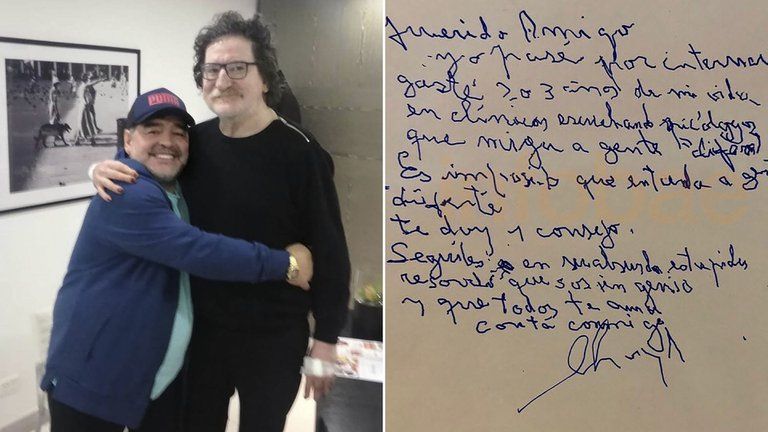 PUMA
Querido Amigo
yo pasé por internar
gasté 2 o 3 años de mi vida
en clínicas escuchando psicólogos
que migra a gente "difere
Es imposib que entienda a ge
diferente
te doy 1 consejo.
Seguiles en su absurda estupidez
recordá que sos un genio
y que todos te ama
contá conmigo
infobae